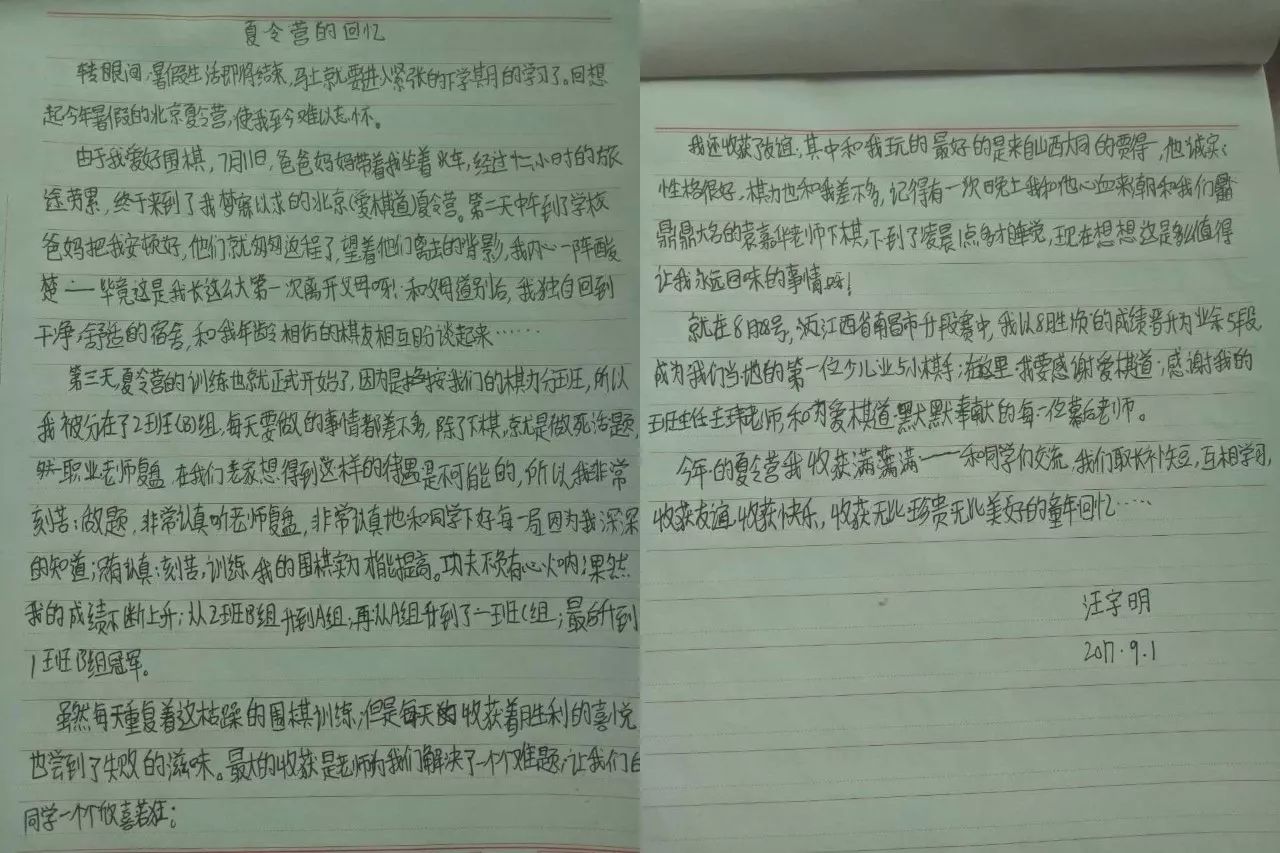 夏令营的回忆
转眼间,暑假生活即将结束,马上就要进入紧张的下学期的学习了。回想
起今年暑假的北京夏令营,使我至今难以忘怀。
由于我爱好围棋,7月11日,爸爸妈妈带着我坐着火车,经过十二小时的旅
途劳累,终于来到了我梦寐以求的北京(爱棋道)夏令营。第二天中午到了学校
爸妈把我安顿好,他们就匆匆返程了,望着他们离去的背影,我内心一阵酸
楚——毕竟这是我长这么大第一次离开父母呀!和父母道别后,我独自回到
干净,舒适的宿舍,和我年龄相仿的棋友相互盼谈起来……
第三天,夏令营的训练也就正式开始了,因为是按我们的棋力分班,所以
我被分在了2班(B)组,每天要做的事情都差不多,除了下棋,就是做死活题,
职业老师复盘,在我们老家想得到这样的待遇是不可能的,所以我非常
刻苦:做题,非常认真听老师复盘,非常认真地和同学下好每一局因为我深深
的知道;认真;刻苦,训练,我的围棋实力才能提高。功夫不负有心人呐;果然
我的成绩不断上升;从2班B组升到A组;再从A组升到了一班C组;最后升到
1班B组冠军。
虽然每天重复着这枯躁的围棋训练,但是每天的收获着胜利的喜悦
也尝到了失败的滋味。最大的收获是老师为我们解决了一个个难题,让我们
同学一个个欣喜若狂;
我还收获了友谊,其中和我玩的最好的是来自山西大同的贾得一,他诚实;
性格很好,棋力也和我差不多,记得有一次晚上我和他心血来潮和我们
鼎鼎大名的袁嘉华老师下棋,下到了凌晨1点多才睡觉,现在想想这是多么值得
让我永远回味的事情呀!
就在8月28号,江西省南昌市升段赛中,我以8胜1负的成绩晋升为业余5段
成为我们当地的第一位少儿业5小棋手;在这里我要感谢爱棋道;感谢我的
班主任王玮老师,和为爱棋道默默奉献的每一位幕后老师。
今年的夏令营我收获满满——和同学们交流,我们取长补短,互相学习,
收获友谊,收获快乐,收获无比珍贵无比美好的童年回忆……
汪宇明
2017.9.1